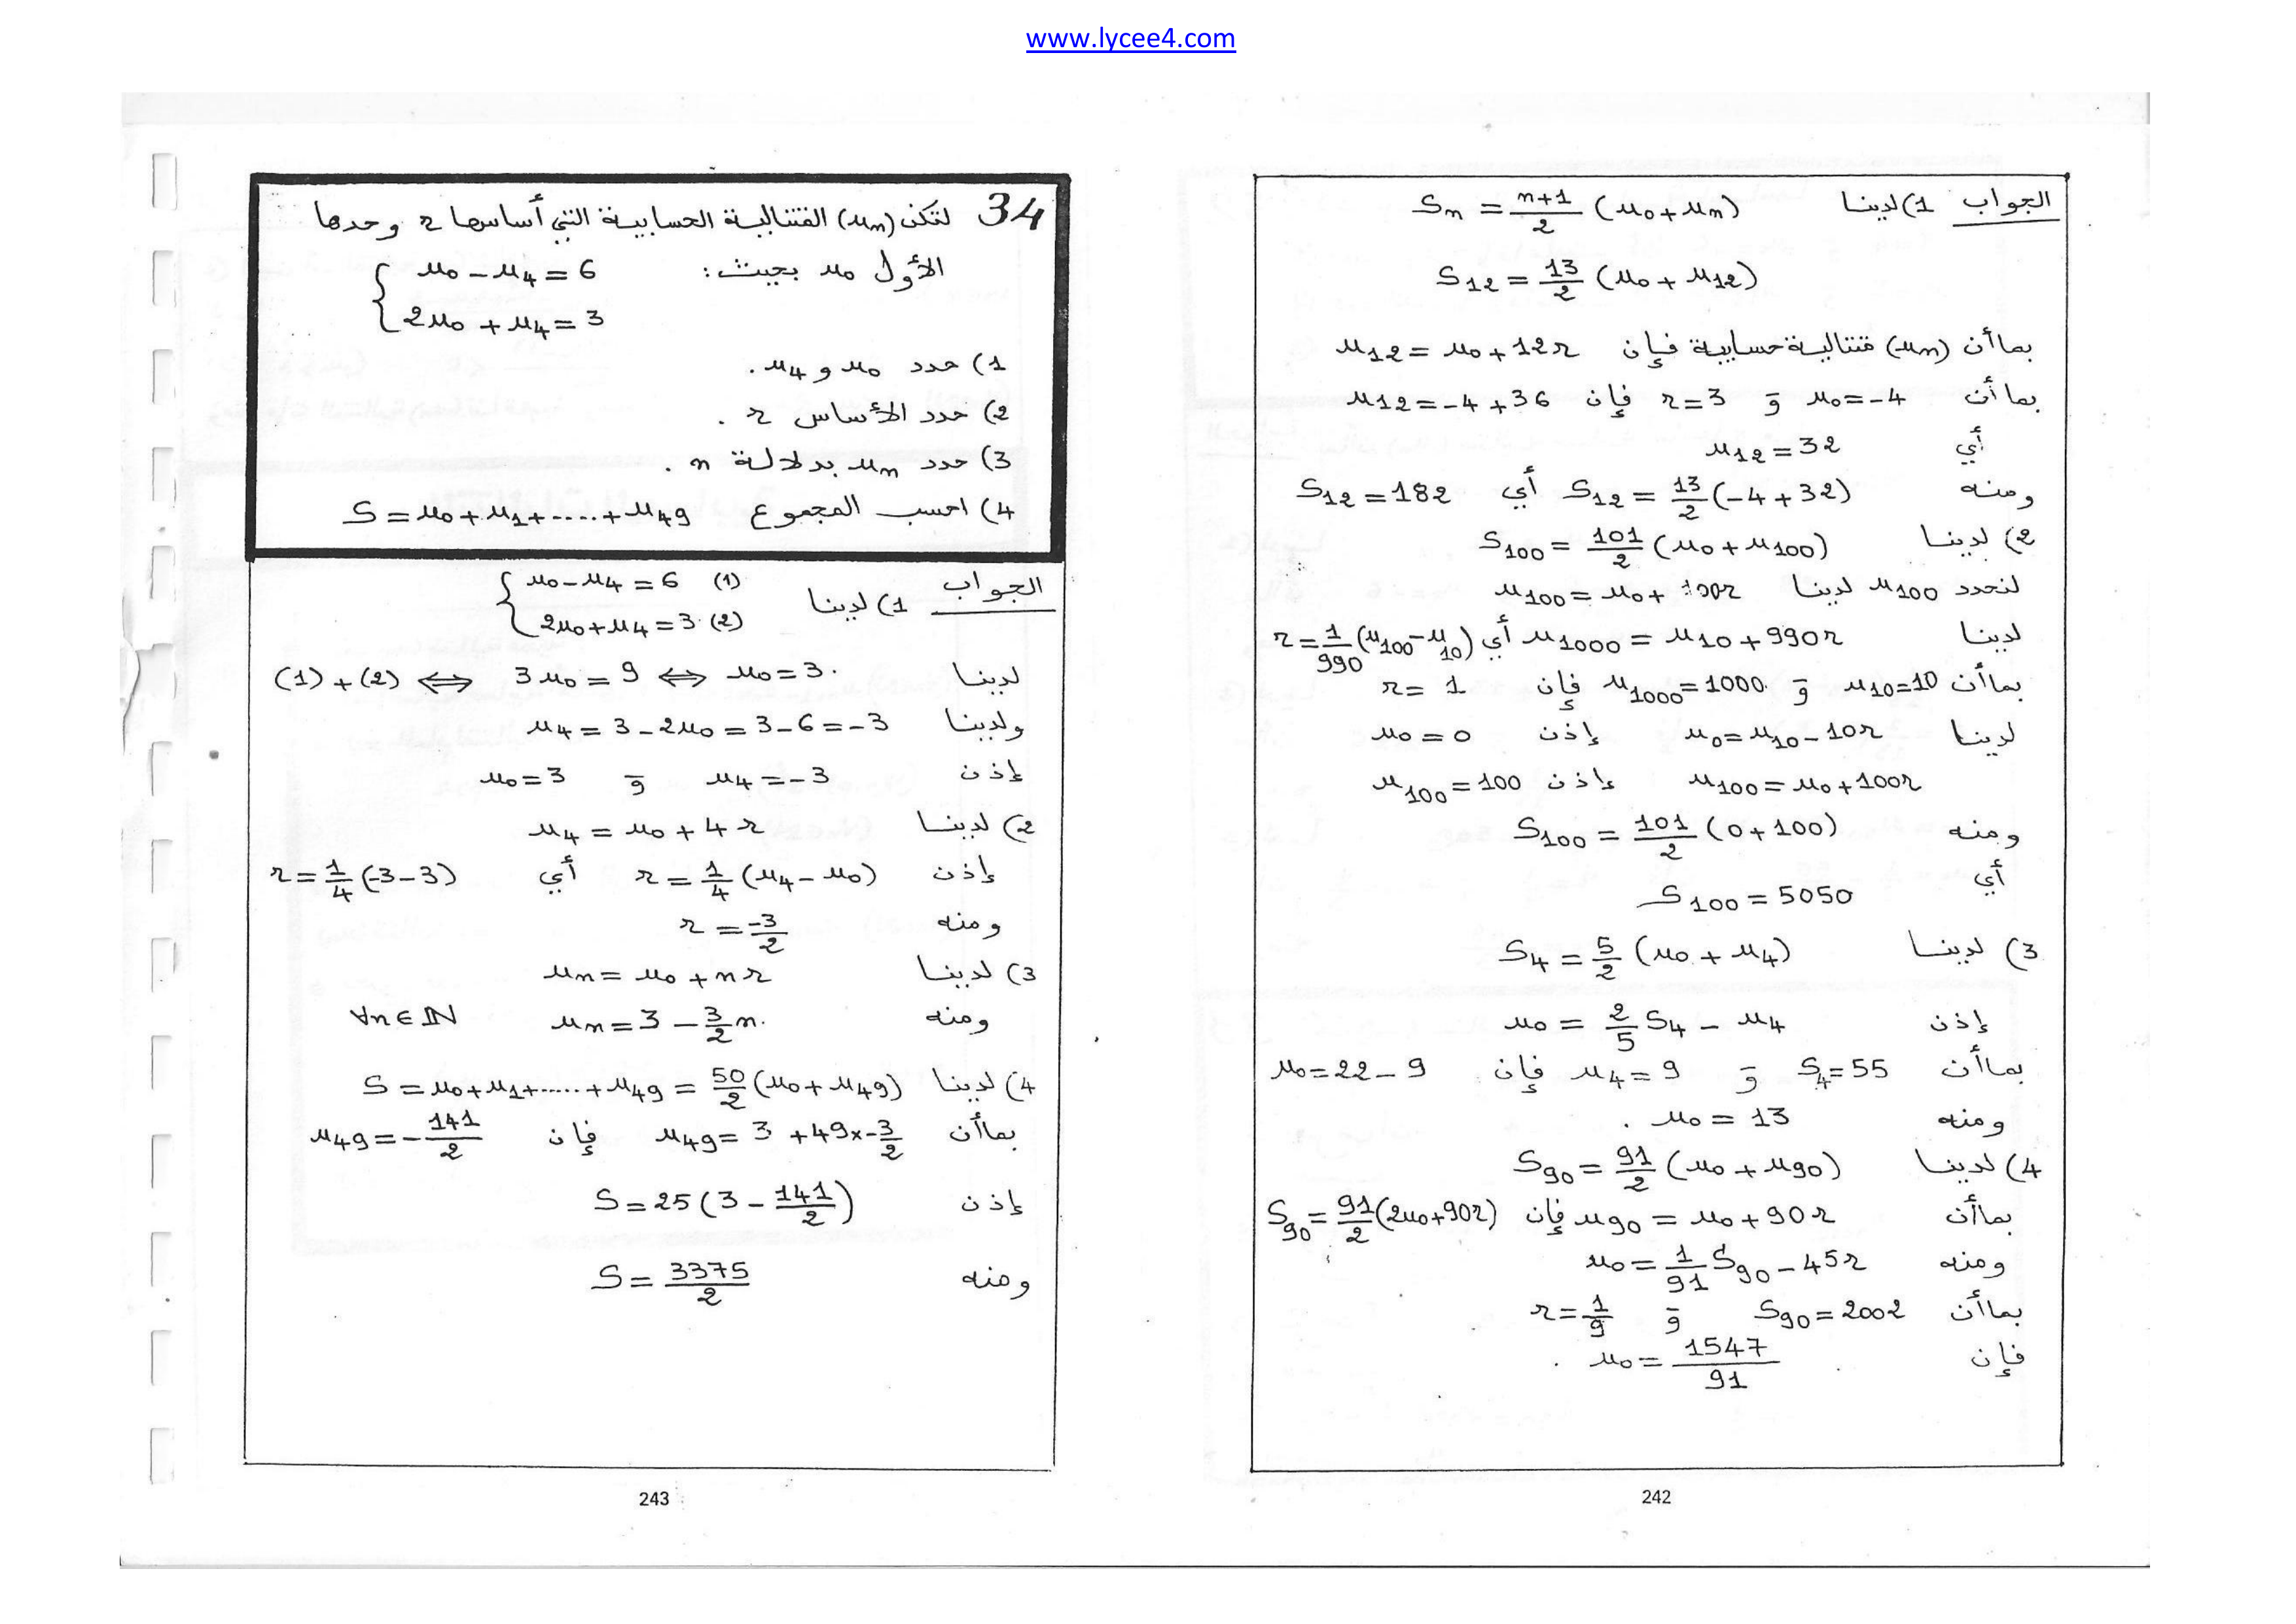 www.lycee4.com
الجواب 1) لدينا Sn = n+1/2 (u0 + un)
S12 = 13/2 (u0 + u12)
بما أن (un) متتالية حسابية فإن u12 = u0 + 12r
بما أن u0 = -4 و r = 3 فإن u12 = -4 + 36
أي u12 = 32
ومنه S12 = 13/2 (-4 + 32) أي S12 = 182
2) لدينا S100 = 101/2 (u0 + u100)
لنحدد u100 لدينا u100 = u0 + 100r
لدينا u1000 = u10 + 990r أي r = 1/990 (u100 - u10)
بما أن u10 = 10 و u1000 = 1000 فإن r = 1
لدينا u0 = u10 - 10r إذن u0 = 0
u100 = u0 + 100r إذن u100 = 100
ومنه S100 = 101/2 (0 + 100)
أي S100 = 5050
3) لدينا S4 = 5/2 (u0 + u4)
إذن u0 = 2/5 S4 - u4
بما أن S4 = 55 و u4 = 9 فإن u0 = 22 - 9
ومنه u0 = 13 .
4) لدينا S90 = 91/2 (u0 + u90)
بما أن u90 = u0 + 90r فإن S90 = 91/2 (2u0 + 90r)
ومنه u0 = 1/91 S90 - 45r
بما أن S90 = 2002 و r = 1/9
فإن u0 = 1547/91 .
242
34 لتكن (un) المتتالية الحسابية التي أساسها r وحدها
الأول u0 بحيث : { u0 - u4 = 6
2u0 + u4 = 3
1) حدد u0 و u4 .
2) حدد الأساس r .
3) حدد un بدلالة n .
4) احسب المجموع S = u0 + u1 + ..... + u49
الجواب 1) لدينا { u0 - u4 = 6 (1)
2u0 + u4 = 3 (2)
لدينا (1) + (2) ⟺ 3u0 = 9 ⟺ u0 = 3.
ولدينا u4 = 3 - 2u0 = 3 - 6 = -3
إذن u4 = -3 و u0 = 3
2) لدينا u4 = u0 + 4r
إذن r = 1/4 (u4 - u0) أي r = 1/4 (-3 - 3)
ومنه r = -3/2
3) لدينا un = u0 + nr
ومنه un = 3 - 3/2 n. ∀n ∈ ℕ
4) لدينا S = u0 + u1 + ...... + u49 = 50/2 (u0 + u49)
بما أن u49 = 3 + 49x-3/2 فإن u49 = -141/2
إذن S = 25 (3 - 141/2)
ومنه S = 3375/2
243